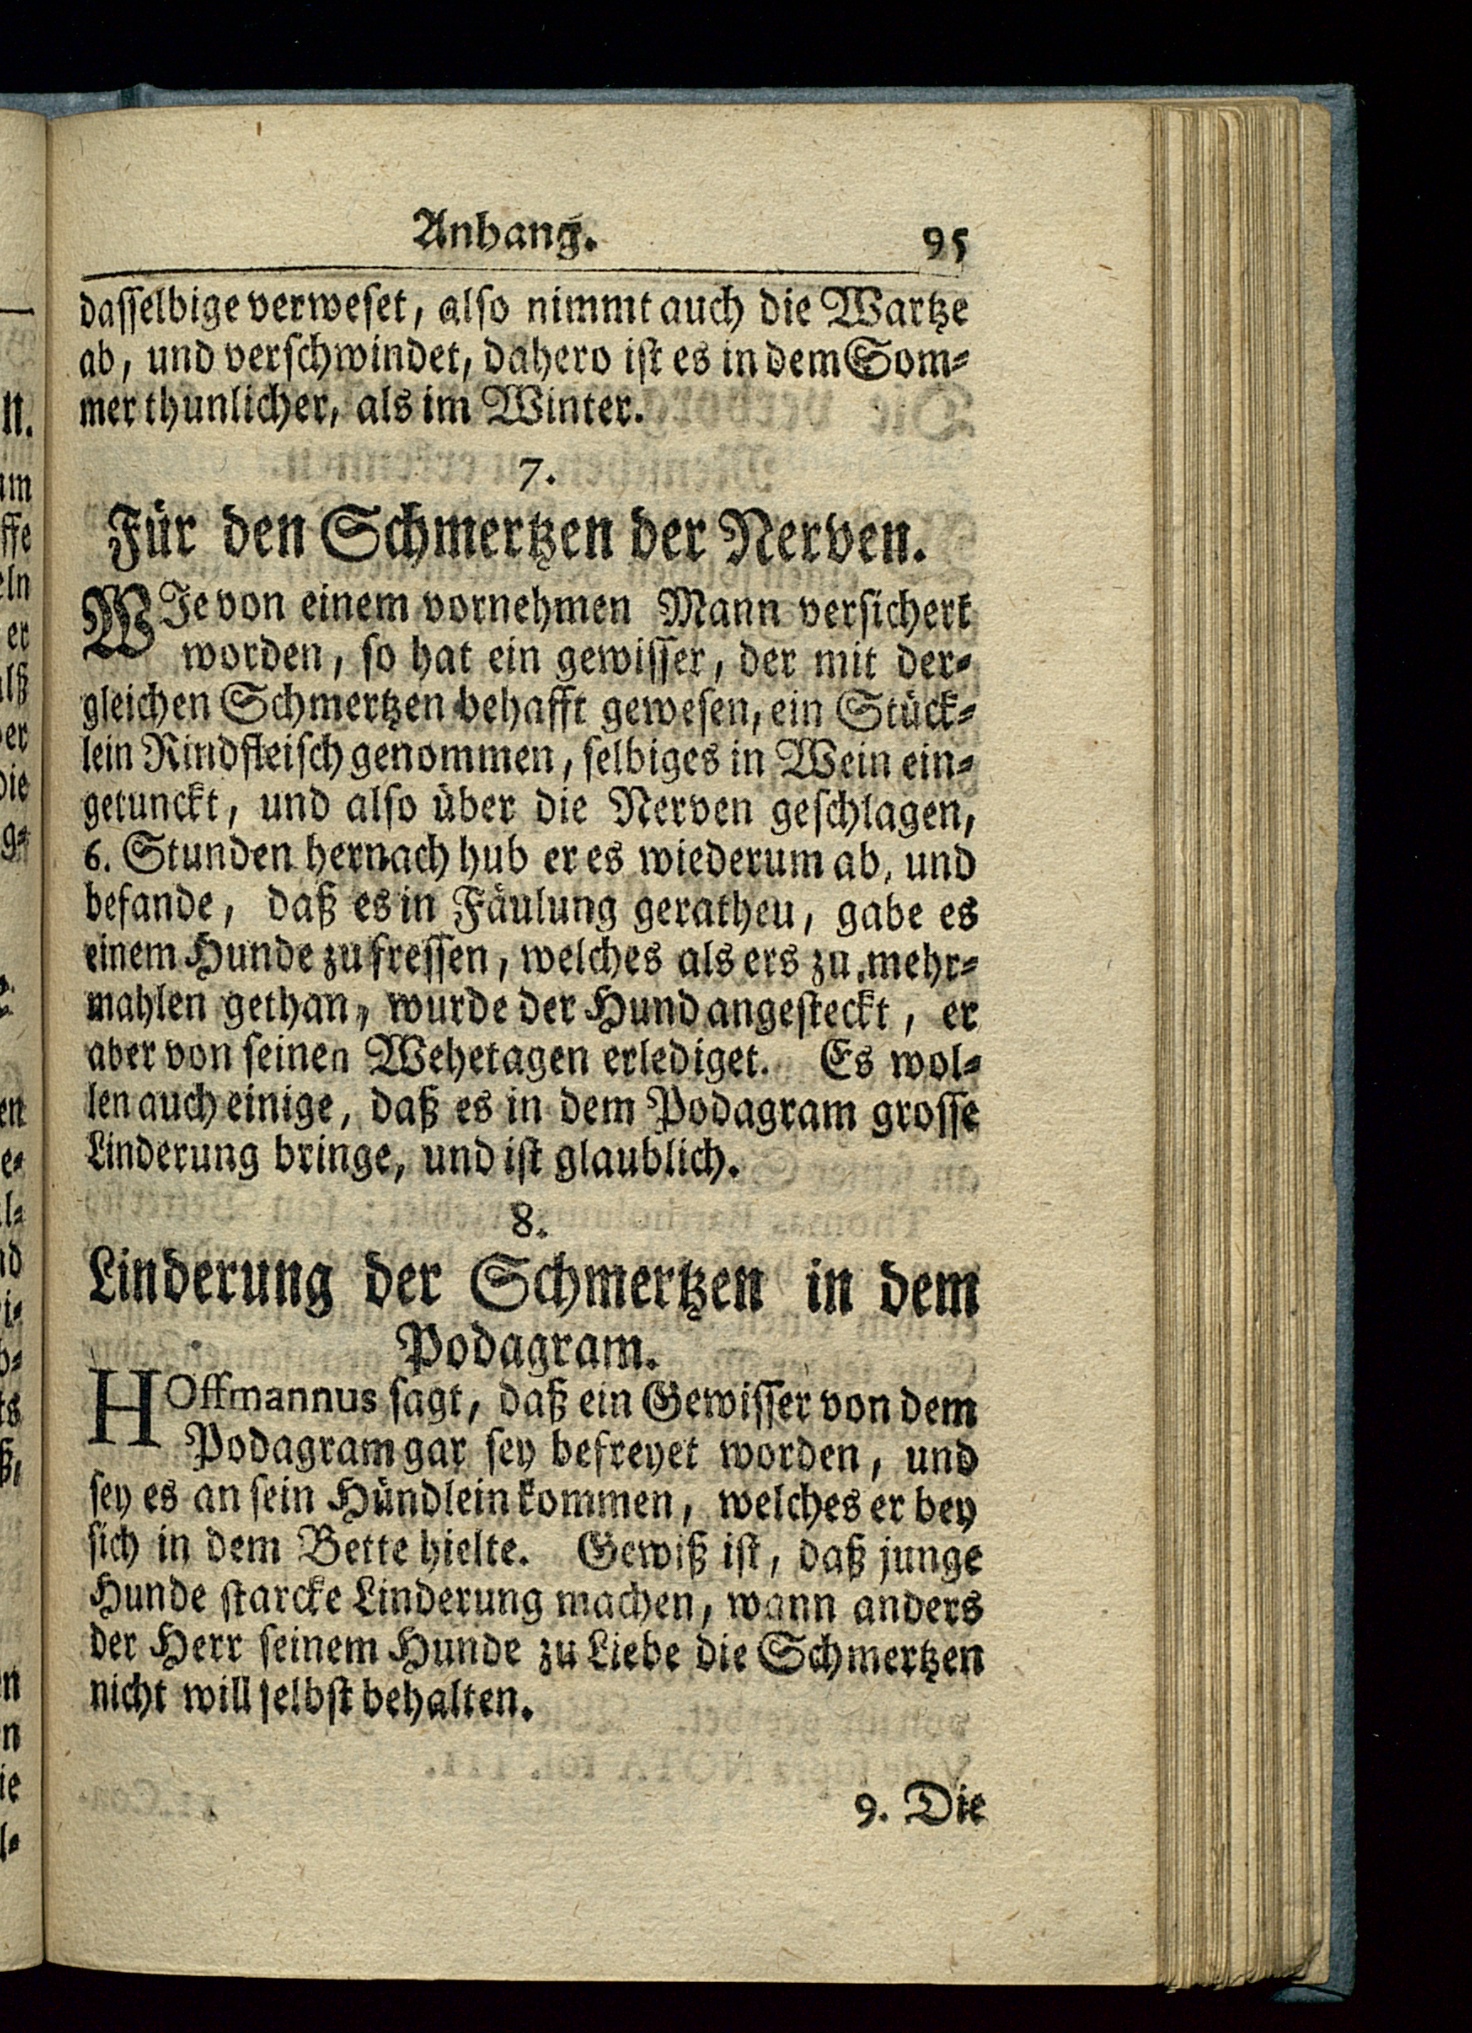 Anhang. 95
dasselbige verweset, also nimmt auch die Wartze
ab, und verschwindet, dahero ist es in dem Som-
mer thunlicher, als im Winter.
7.
Für den Schmertzen der Nerven.
WJe von einem vornehmen Mann versichert
worden, so hat ein gewisser, der mit der-
gleichen Schmertzen behafft gewesen, ein Stück-
lein Rindfleisch genommen, selbiges in Wein ein-
getunckt, und also über die Nerven geschlagen,
6. Stunden hernach hub er es wiederum ab, und
befande, daß es in Fäulung geratheu, gabe es
einem Hunde zu fressen, welches als ers zu mehr-
mahlen gethan, wurde der Hund angesteckt, er
aber von seinen Wehetagen erlediget. Es wol-
len auch einige, daß es in dem Podagram grosse
Linderung bringe, und ist glaublich.
8.
Linderung der Schmertzen in dem
Podagram.
HOffmannus sagt, daß ein Gewisser von dem
Podagram gar sey befreyet worden, und
sey es an sein Hündlein kommen, welches er bey
sich in dem Bette hielte. Gewiß ist, daß junge
Hunde starcke Linderung machen, wann anders
der Herr seinem Hunde zu Liebe die Schmertzen
nicht will selbst behalten.
9. Die